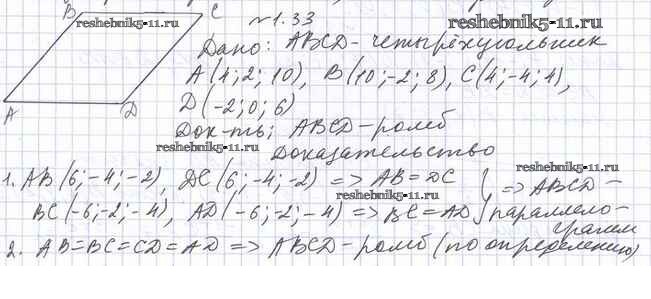 B C №1.33
reshebnik5-11.ru
reshebnik5-11.ru
Дано: ABCD - четырёхугольник
A(4; 2; 10), B(10; -2; 8), C(4; -4; 4),
D(-2; 0; 6)
A D
Док-ть: ABCD - ромб
reshebnik5-11.ru
Доказательство
reshebnik5-11.ru
1. AB(6; -4; -2), DC(6; -4; -2) => AB = DC } => ABCD -
reshebnik5-11.ru
BC(-6; -2; -4), AD(-6; -2; -4) => BC = AD параллело-
грамм
2. AB=BC=CD=AD => ABCD - ромб (по определению)